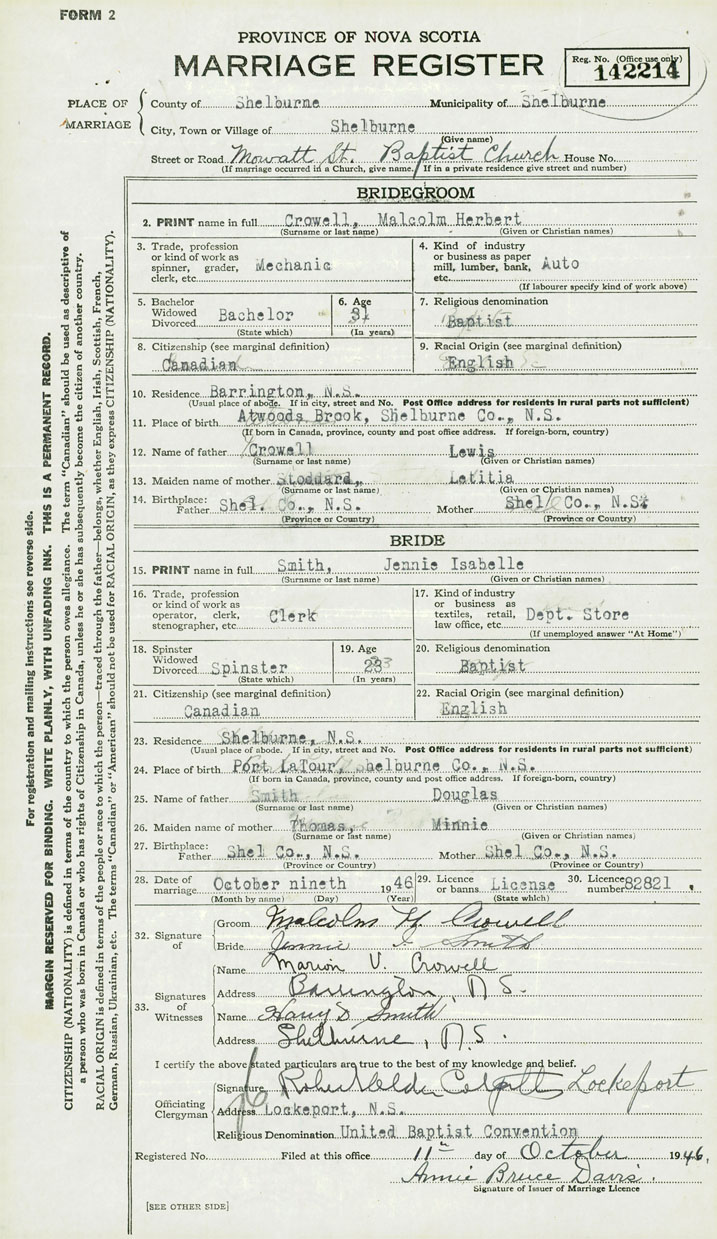 FORM 2
PROVINCE OF NOVA SCOTIA
MARRIAGE REGISTER
Reg. No. (Office use only)
142214
PLACE OF MARRIAGE
County of Shelburne Municipality of Shelburne
City, Town or Village of Shelburne
(Give name)
Street or Road Mowatt St. Baptist Church House No.
(If marriage occurred in a Church, give name. If in a private residence give street and number)
BRIDEGROOM
2. PRINT name in full Crowell, Malcolm Herbert
(Surname or last name) (Given or Christian names)
3. Trade, profession or kind of work as spinner, grader, clerk, etc. Mechanic
4. Kind of industry or business as paper mill, lumber, bank, etc. Auto
(If labourer specify kind of work above)
5. Bachelor Widowed Divorced Bachelor
(State which)
6. Age 31
(In years)
7. Religious denomination
Baptist
8. Citizenship (see marginal definition)
Canadian
9. Racial Origin (see marginal definition)
English
10. Residence Barrington, N.S.
(Usual place of abode. If in city, street and No. Post Office address for residents in rural parts not sufficient)
11. Place of birth Atwoods Brook, Shelburne Co., N.S.
(If born in Canada, province, county and post office address. If foreign-born, country)
12. Name of father Crowell Lewis
(Surname or last name) (Given or Christian names)
13. Maiden name of mother Stoddard, Letitia
(Surname or last name) (Given or Christian names)
14. Birthplace: Father Shel. Co., N.S. Mother Shel Co., N.S.
(Province or Country) (Province or Country)
BRIDE
15. PRINT name in full Smith, Jennie Isabelle
(Surname or last name) (Given or Christian names)
16. Trade, profession or kind of work as operator, clerk, stenographer, etc. Clerk
17. Kind of industry or business as textiles, retail, law office, etc. Dept. Store
(If unemployed answer "At Home")
18. Spinster Widowed Divorced Spinster
(State which)
19. Age 23
(In years)
20. Religious denomination
Baptist
21. Citizenship (see marginal definition)
Canadian
22. Racial Origin (see marginal definition)
English
23. Residence Shelburne, N.S.
(Usual place of abode. If in city, street and No. Post Office address for residents in rural parts not sufficient)
24. Place of birth Port LaTour, Shelburne Co., N.S.
(If born in Canada, province, county and post office address. If foreign-born, country)
25. Name of father Smith Douglas
(Surname or last name) (Given or Christian names)
26. Maiden name of mother Thomas, Minnie
(Surname or last name) (Given or Christian names)
27. Birthplace: Father Shel Co., N.S. Mother Shel Co., N.S.
(Province or Country) (Province or Country)
28. Date of marriage October nineth 1946
(Month by name) (Day) (Year)
29. Licence or banns License
(State which)
30. Licence number 82821
32. Signature of
Groom Malcolm H Crowell
Bride Jennie I Smith
33. Signatures of Witnesses
Name Marion V. Crowell
Address Barrington, N S.
Name Harry D Smith
Address Shelburne, N.S.
I certify the above stated particulars are true to the best of my knowledge and belief.
Officiating Clergyman
Signature Lockeport
Address Lockeport, N.S.
Religious Denomination United Baptist Convention
Registered No. Filed at this office 11th day of October 1946.
Annie Bruce Davis.
Signature of Issuer of Marriage Licence
[SEE OTHER SIDE]
For registration and mailing instructions see reverse side.
MARGIN RESERVED FOR BINDING. WRITE PLAINLY, WITH UNFADING INK. THIS IS A PERMANENT RECORD.
CITIZENSHIP (NATIONALITY) is defined in terms of the country to which the person owes allegiance. The term "Canadian" should be used as descriptive of
a person who was born in Canada or who has rights of Citizenship in Canada, unless he or she has subsequently become the citizen of another country.
RACIAL ORIGIN is defined in terms of the people or race to which the person—traced through the father—belongs, whether English, Irish, Scottish, French,
German, Russian, Ukrainian, etc. The terms "Canadian" or "American" should not be used for RACIAL ORIGIN, as they express CITIZENSHIP (NATIONALITY).